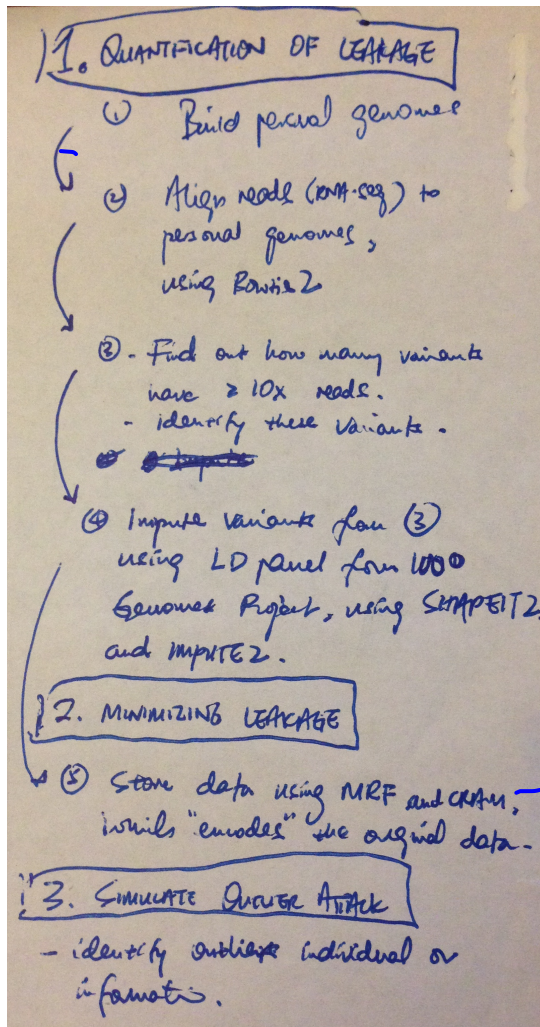 1. QUANTIFICATION OF LEAKAGE
① Build personal genomes
② Align reads (RNA-seq) to
personal genomes,
using Bowtie2
③ - Find out how many variants
have ≥ 10x reads.
- identify these variants.
④ Impute variants from ③
using LD panel from 1000
Genomes Project, using SHAPEIT2
and IMPUTE2.
2. MINIMIZING LEAKAGE
⑤ Store data using MRF and CRAM,
"encodes" the original data.
3. SIMULATE OUTLIER ATTACK
- identify outlier individual or
information.